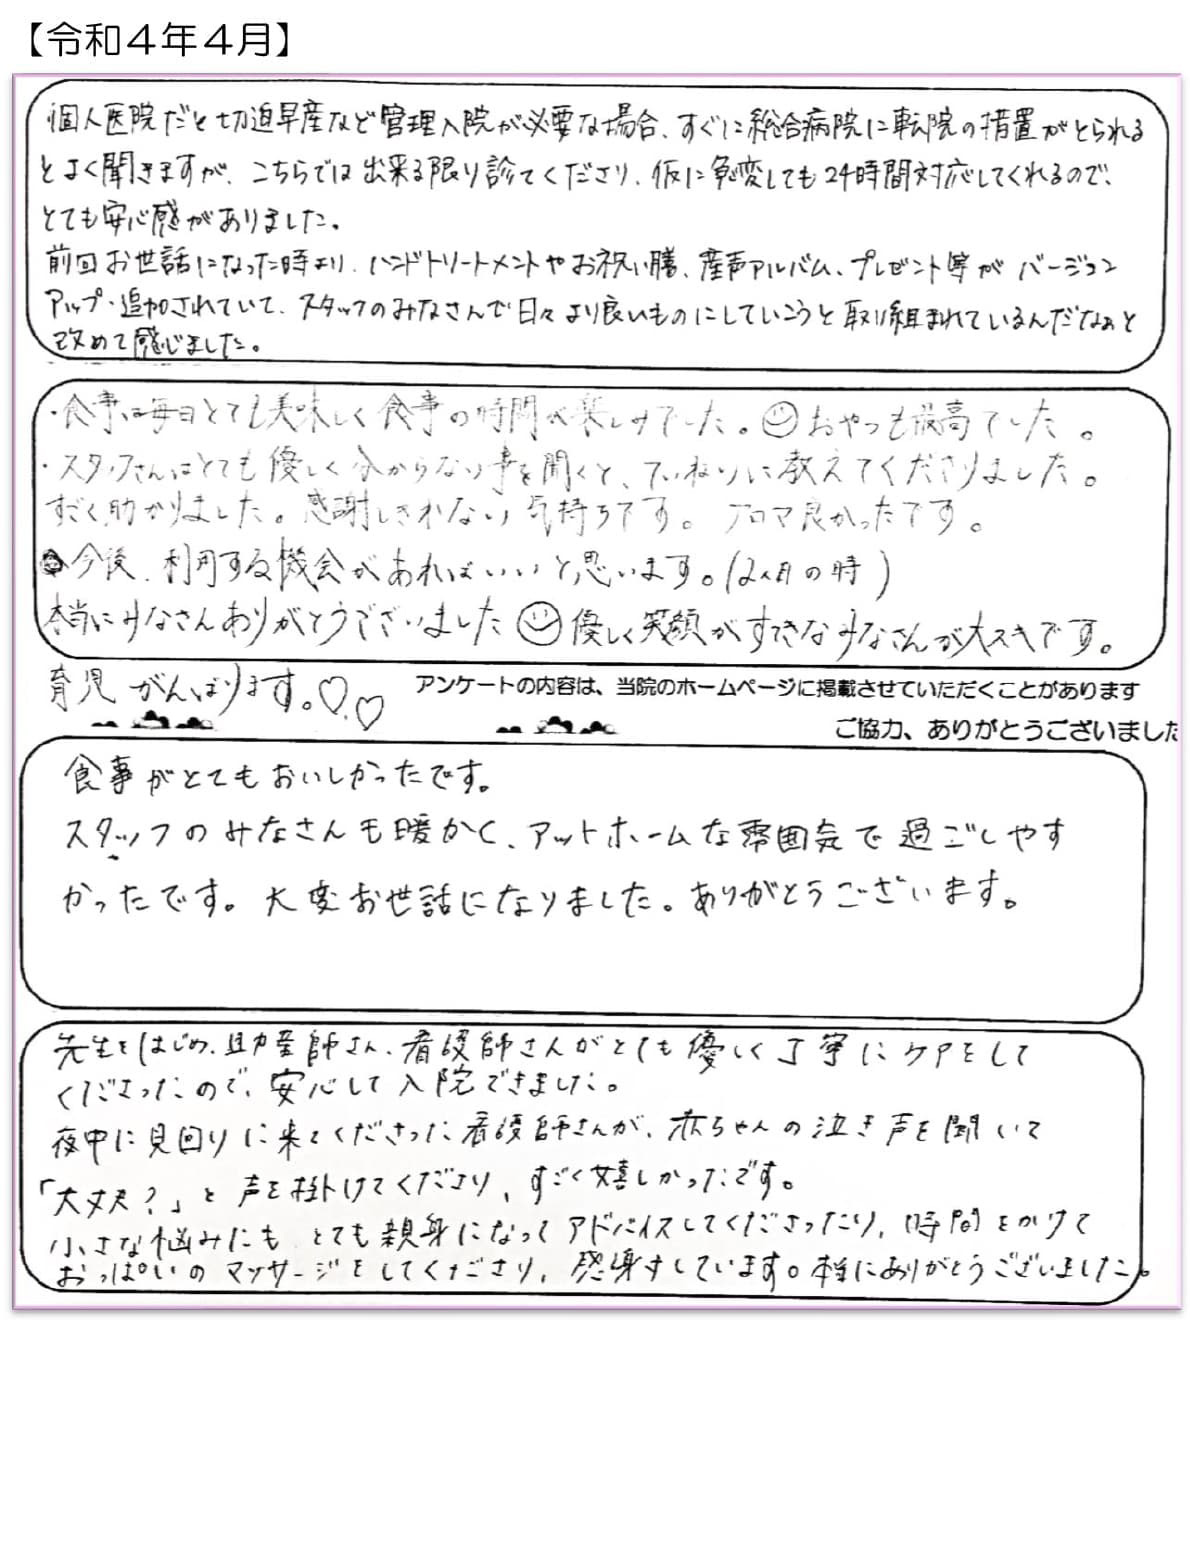 【令和４年４月】
個人医院だと切迫早産など管理入院が必要な場合、すぐに総合病院に転院の措置がとられる
とよく聞きますが、こちらでは出来る限り診てくださり、仮に急変しても24時間対応してくれるので、
とても安心感がありました。
前回お世話になった時より、ハンドトリートメントやお祝い膳、産声アルバム、プレゼント等がバージョン
アップ・追加されていて、スタッフのみなさんで日々より良いものにしていこうと取り組まれているんだなぁと
改めて感じました。
・食事は毎日とても美味しく食事の時間が楽しみでした。☺おやつも最高でした。
・スタッフさんはとても優しく分からない事を聞くと、ていねいに教えてくださりました。
すごく助かりました。感謝しきれない気持ちです。アロマ良かったです。
今後、利用する機会があればいいと思います。(2人目の時)
本当にみなさんありがとうございました☺優しく笑顔がすてきなみなさんが大スキです。
育児がんばります。♡♡
アンケートの内容は、当院のホームページに掲載させていただくことがあります
ご協力、ありがとうございました
食事がとてもおいしかったです。
スタッフのみなさんも暖かく、アットホームな雰囲気で過ごしやす
かったです。大変お世話になりました。ありがとうございます。
先生をはじめ、助産師さん、看護師さんがとても優しく丁寧にケアをして
くださったので、安心して入院できました。
夜中に見回りに来てくださった看護師さんが、赤ちゃんの泣き声を聞いて
「大丈夫？」と声を掛けてくださり、すごく嬉しかったです。
小さな悩みにも、とても親身になってアドバイスしてくださったり、時間をかけて
おっぱいのマッサージをしてくださり、感謝しています。本当にありがとうございました。